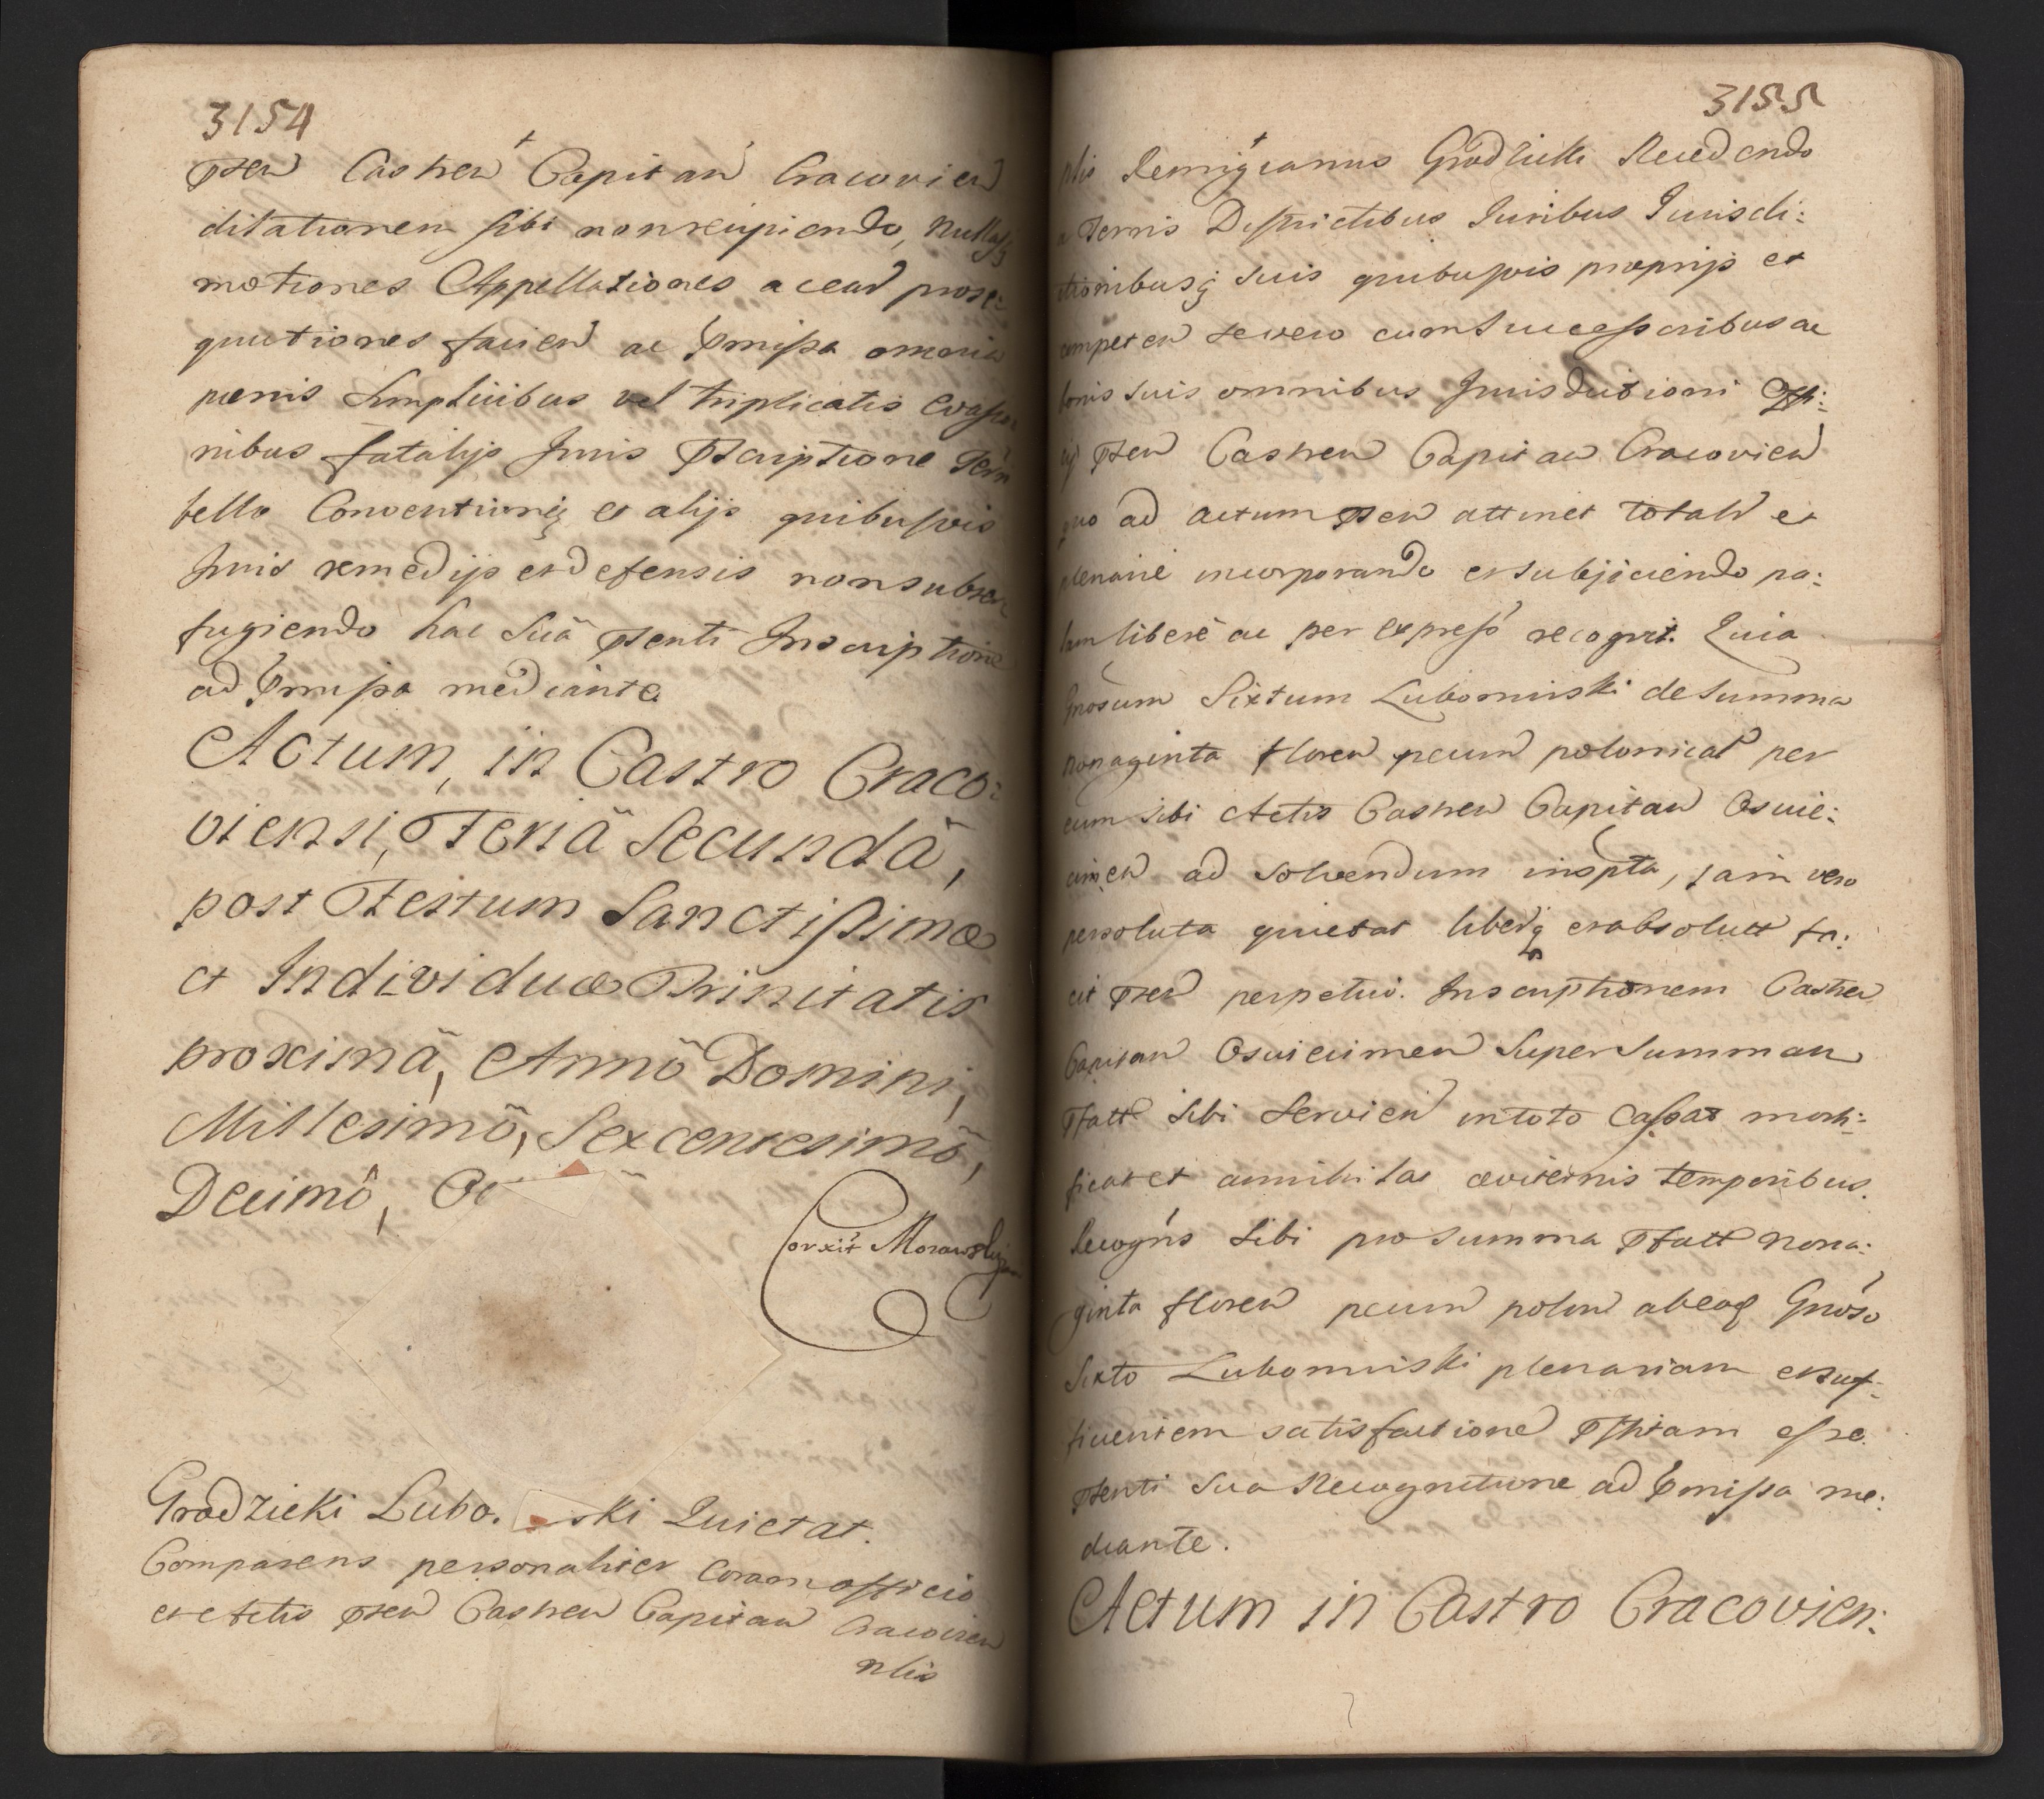 3154
pten Castren Capitan Cracovien
ditationem sibi non recipiendo, Nullasq
motiones Appellationes acead prose:
quutiones facien ac pmissa omnia
paenis simplicibus vel triplicatis evasio
nibus fatalijs Juris pscriptione Term
bello Conventioneq et alijs quibusvis
Juris remedijs et defensis non subter
fugiendo hac suâ psenti Inscriptione
ad pmissa mediante
Actum, in Castro Craco:
viensi, Feriâ Secundâ,
post Festum Sanctissimæ
et Individuæ Trinitatis
proximâ, Annô Domini,
Millesimô, Sexcentesimô,
Decimô,
Corxit Morawski
Grodzicki Lubo. ski Quietat.
Comparens personaliter coram officio
et Actis pten Castren Capitan Cracovien
nlis
3155
nlis Remigianus Grodzicki Recedendo
a Terris Districtibus Juribus Jurisdi:
ctionibusq suis quibusvis proprijs et
competen severo cum Successoribus ac
bonis suis omnibus Jurisdictioni Offi:
cij pten Castren Capitan Cracovien
quo ad actum psen attinet totalr et
plenarie incorporando et subijciendo pa:
lam liberè ac per express recognt. Quia
Gnosum Sixtum Lubomirski de summa
nonaginta floren pecun polonical per
eum sibi Actis Castren Capitan Oswie:
cimen ad solvendum inspta, jam vero
persoluta quietat liberq et absolutt fa:
cit pten perpetuo. Inscriptionem Castren
Capitan Oswiecimen super summam
pfatt sibi servien in toto cassat morti:
ficat et annihilat æviternis temporibus.
Recogns sibi pro summa pfatt nona:
ginta floren pecun polon ab eod Gnoso
Sixto Lubomirski plenariam et suf:
ficientem satisfactione pstitam esse
psenti sua Recognitione ad pmissa me:
diante.
Actum in Castro Cracovien: